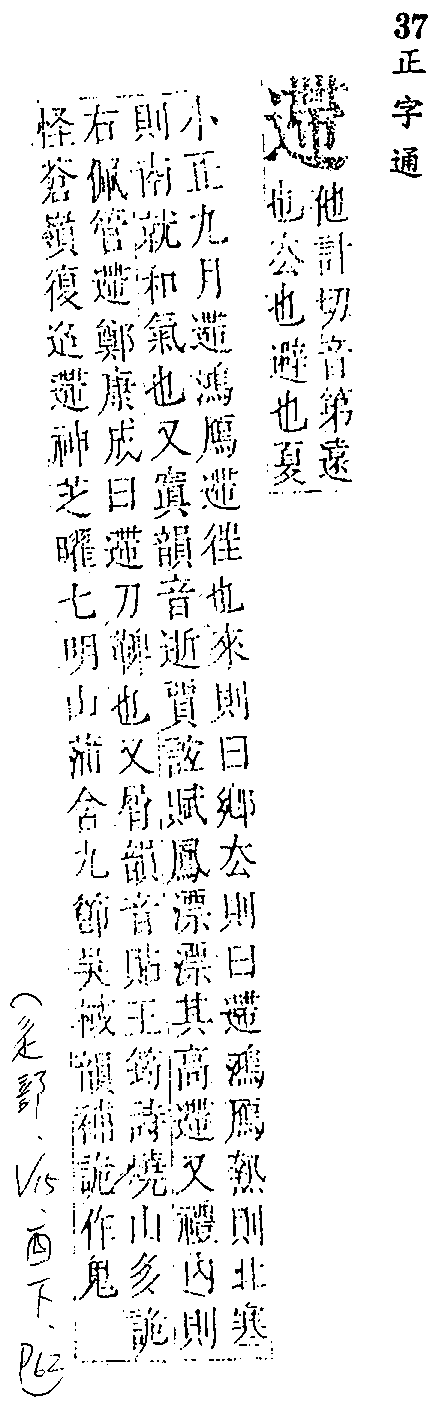 37正字通
遰
他計切音第遠
也厺也避也夏
小正九月遰鴻鴈遰徃也來則曰鄉厺則曰遰鴻鴈熱則北寒
則南就和氣也又霽韻音逝賈誼賦鳳漂漂其高遰又禮內則
右佩管遰鄭康成曰遰刀鞞也又屑韻音貼王筠詩燒山多詭
怪蒼嶺復迢遰神芝曜七明山蒲含九節吳棫韻補詭作鬼
(辵部、V15、酉下、P62)